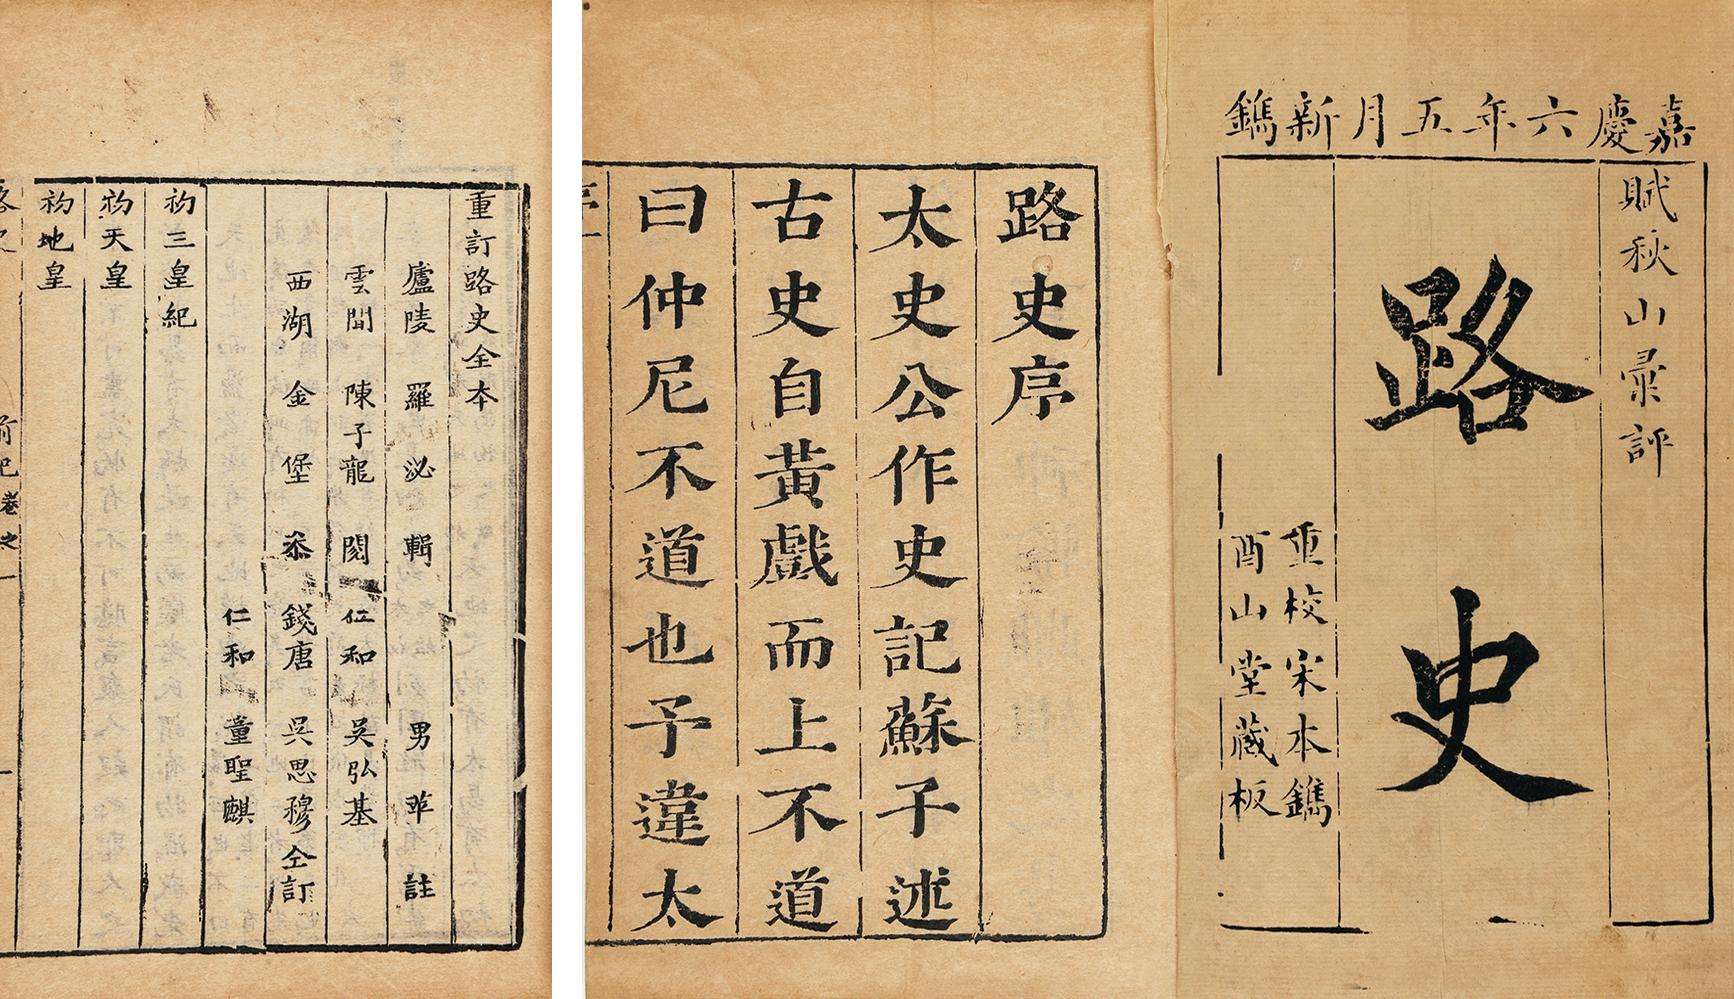 嘉慶六年五月新鐫
賦秋山彙評
路史
重校宋本鐫
酉山堂藏板
路史序
太史公作史記蘇子述
古史自黃戲而上不道
曰仲尼不道也予違太
重訂路史全本
廬陵 羅泌 輯 男苹 註
雲間 陳子龍 閱 仁和 吳弘基
西湖 金堡 叅 錢唐 吳思穆 仝訂
仁和 童聖麒
初三皇紀
初天皇
初地皇
路史 前紀卷之一 一